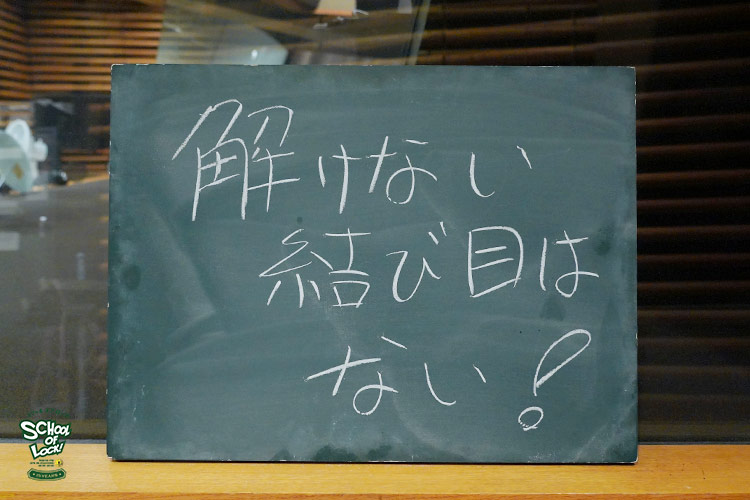 解けない
結び目は
ない!
SCHOOL
OF
LOCK!